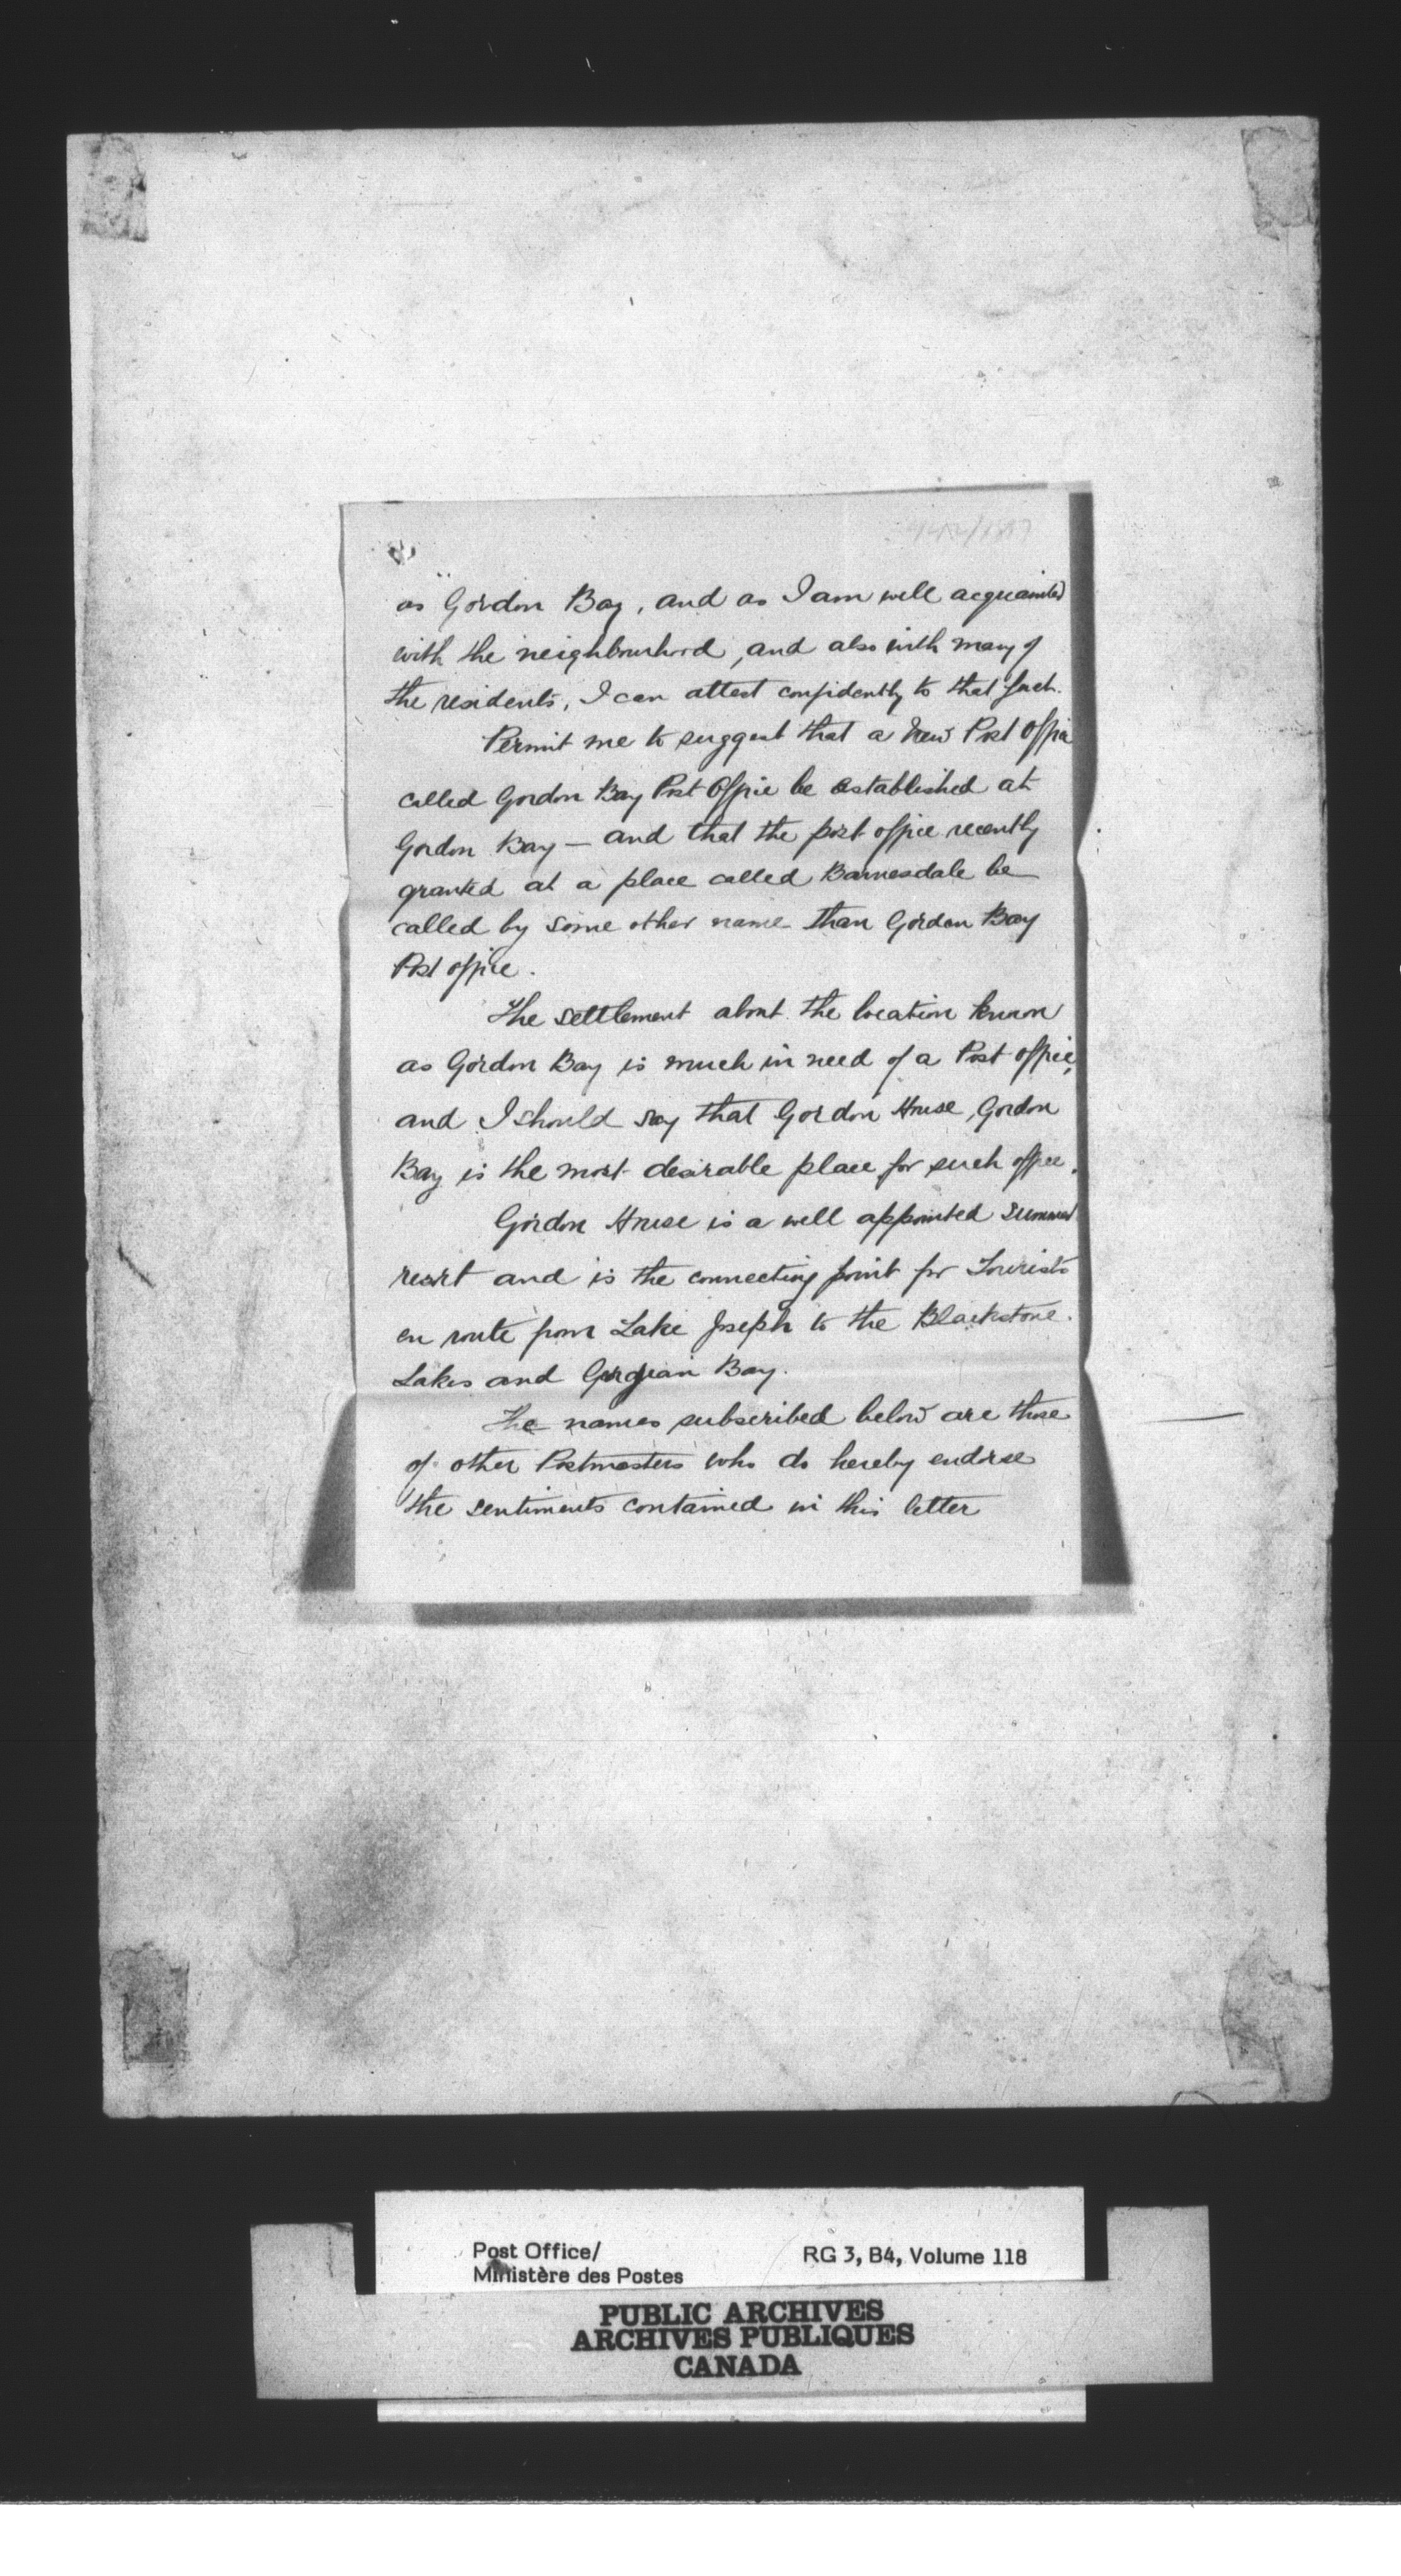 as "Gordon Bay, and as I am well acquainted
with the neighbourhood, and also with many of
the residents, I can attest confidently to that fact.
Permit me to suggest that a new Post Office
called Gordon Bay Post Office be established at
Gordon Bay — and that the post office recently
granted at a place called Barnesdale be
called by some other name than Gordon Bay
Post office.
The settlement about the location known
as Gordon Bay is much in need of a Post office,
and I should say that Gordon House, Gordon
Bay is the most desirable place for such office.
Gordon House is a well appointed summer
resort and is the connecting point for Tourists
en route from Lake Joseph to the Blackstone
Lakes and Georgian Bay.
The names subscribed below are those
of other Postmasters who do hereby endorse
the sentiments contained in this letter
Post Office/
Ministère des Postes
RG 3, B4, Volume 118
PUBLIC ARCHIVES
ARCHIVES PUBLIQUES
CANADA